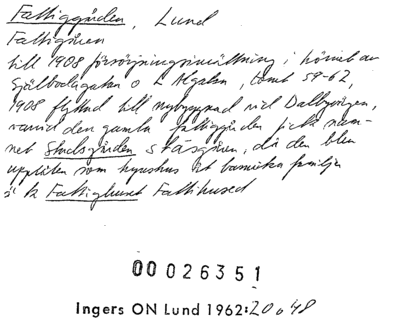 Fattiggården, Lund
Fattigåren
till 1908 försörjningsinrättning i hörnet av
Själbodagatan o L Algatan, tomt 59-62,
1908 flyttad till nybyggnad vid Dalbyvägen,
varvid den gamla fattiggården fick nam-
net Stadsgården stásgåren, då den blev
upplåten som hyreshus åt barnrika familjer
i k Fattighuset Fattihused
00026351
Ingers ON Lund 1962:20 o 48